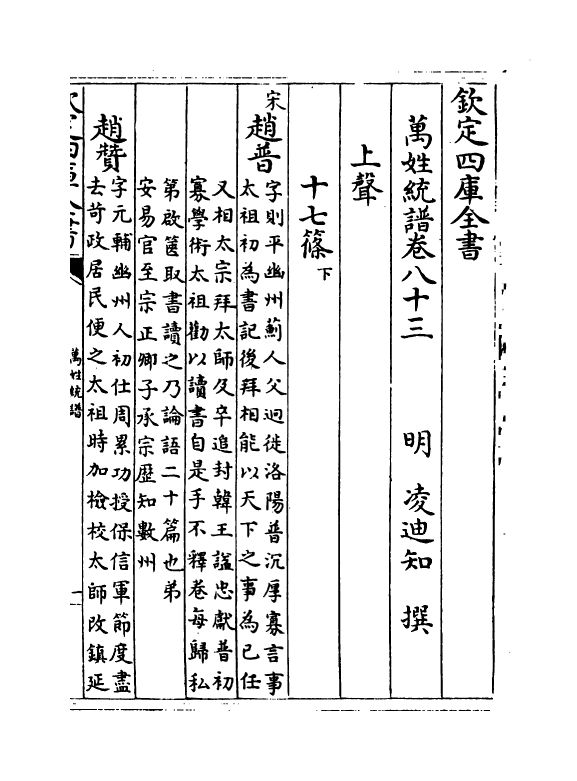 欽定四庫全書
萬姓統譜卷八十三
明 凌迪知 撰
上聲
十七篠下
宋
趙普
字則平幽州薊人父迥徙洛陽普沉厚寡言事
太祖初為書記後拜相能以天下之事為已任
又相太宗拜太師及卒追封韓王諡忠獻普初
寡學術太祖勸以讀書自是手不釋卷每歸私
第啟篋取書讀之乃論語二十篇也弟
安易官至宗正卿子承宗歴知數州
趙贊
字元輔幽州人初仕周累功授保信軍節度盡
去苛政居民便之太祖時加檢校太師改鎮延
萬姓統譜
一